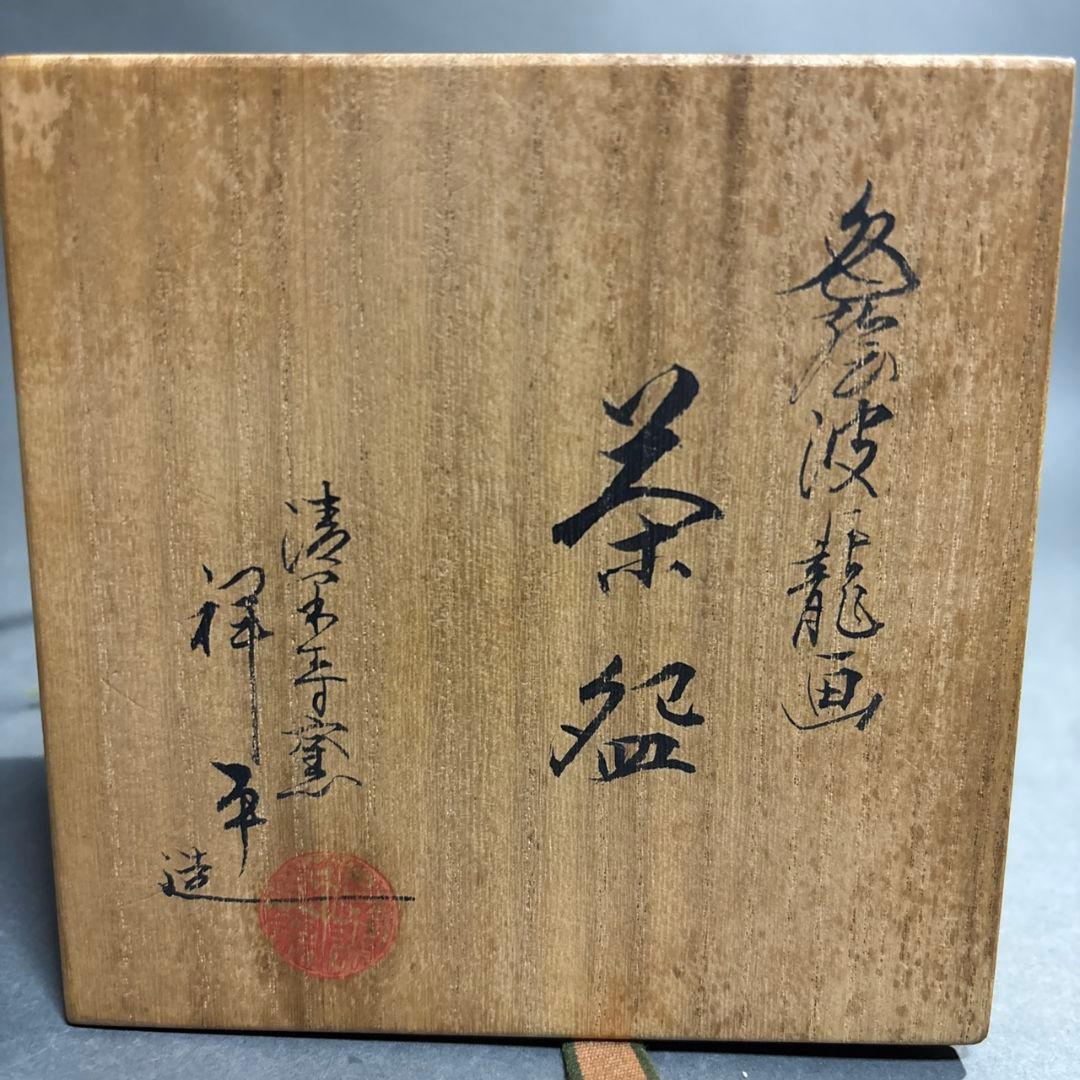 色絵波龍画
茶盌
清閑寺窯
祥平
造